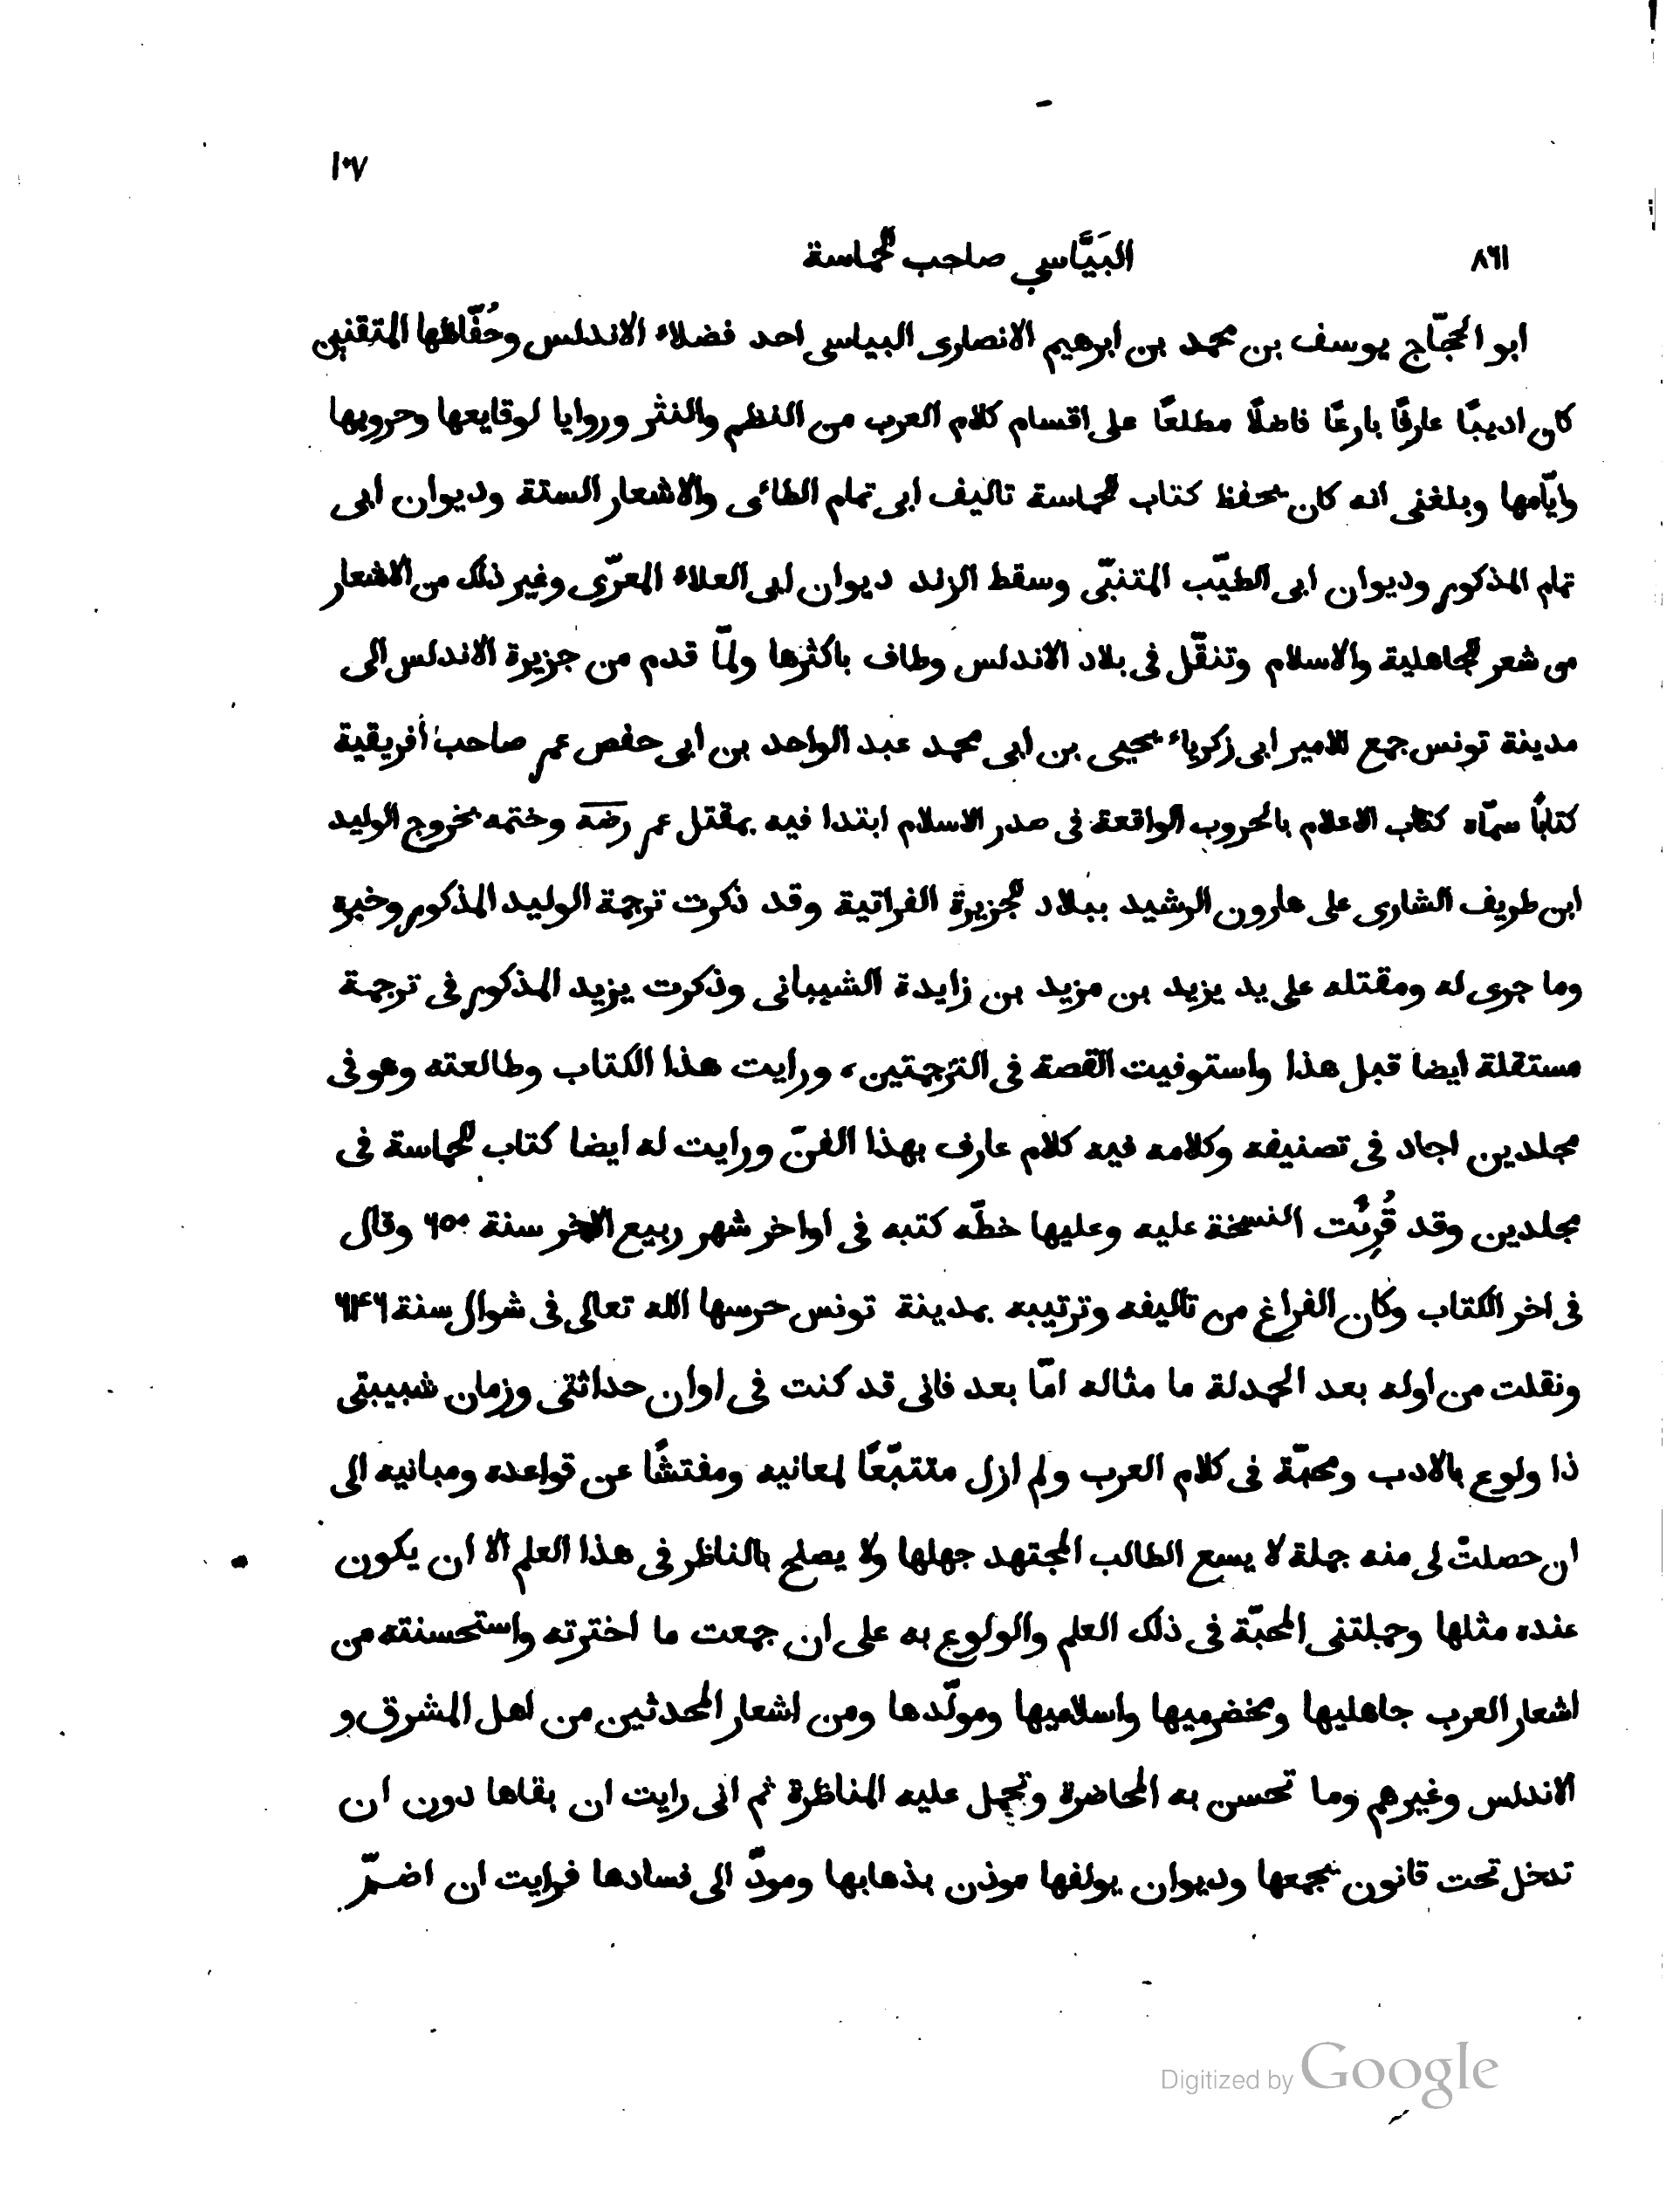 ١٠٧
٨٦١ البَيَّاسي صاحب الحماسة
ابو الحجّاج يوسف بن محمد بن ابرهيم الانصارى البياسى احد فضلاء الاندلس وحُفّاظها المتقنين
كان اديبًا عارفًا بارعًا فاضلًا مطلعًا على اقسام كلام العرب من النظم والنثر وروايا لوقايعها وحروبها
وايّامها وبلغنى انه كان يحفظ كتاب الحماسة تاليف ابى تمام الطائى والاشعار الستة وديوان ابى
تمام المذكور وديوان ابى الطيّب المتنبّى وسقط الزند ديوان ابى العلاء المعرّى وغير ذلك من الاشعار
من شعر الجاهلية والاسلام وتنقّل فى بلاد الاندلس وطاف باكثرها ولمّا قدم من جزيرة الاندلس الى
مدينة تونس جمع للامير ابى زكرياء يحيى بن ابى محمد عبد الواحد بن ابى حفص عمر صاحب أفريقية
كتابًا سمّاه كتاب الاعلام بالحروب الواقعة فى صدر الاسلام ابتدا فيه بمقتل عمر رضه وختمه بخروج الوليد
ابن طريف الشارى على هارون الرشيد ببلاد الجزيرة الفراتية وقد ذكرت ترجمة الوليد المذكور وخبره
وما جرى له ومقتله على يد يزيد بن مزيد بن زايدة الشيبانى وذكرت يزيد المذكور فى ترجمة
مستقلة ايضا قبل هذا واستوفيت القصة فى الترجمتين، ورايت هذا الكتاب وطالعته وهو فى
مجلدين اجاد فى تصنيفه وكلامه فيه كلام عارف بهذا الفنّ ورايت له ايضا كتاب الحماسة فى
مجلدين وقد قُرِئَت النسخة عليه وعليها خطّه كتبه فى اواخر شهر ربيع الاخر سنة ٦٥٠ وقال
فى اخر الكتاب وكان الفراغ من تاليفه وترتيبه بمدينة تونس حرسها الله تعالى فى شوال سنة ٦٤٦
ونقلت من اوله بعد الحمدلة ما مثاله امّا بعد فانى قد كنت فى اوان حداثتى وزمان شبيبتى
ذا ولوع بالادب ومحبّة فى كلام العرب ولم ازل متتبّعًا لمعانيه ومفتشًا عن قواعده ومبانيه الى
ان حصلت لى منه جملة لا يسع الطالب المجتهد جهلها ولا يصلح بالناظر فى هذا العلم الا ان يكون
عنده مثلها وحملتنى المحبّة فى ذلك العلم والولوع به على ان جمعت ما اخترته واستحسنته من
اشعار العرب جاهليها ومخضرميها واسلاميها ومولّدها ومن اشعار المحدثين من اهل المشرق و
الاندلس وغيرهم وما تحسن به المحاضرة وتجمل عليه المناظرة ثم انى رايت ان بقاها دون ان
تدخل تحت قانون يجمعها وديوان يولفها موذن بذهابها ومودّ الى فسادها فرايت ان اضمّر
Digitized by Google